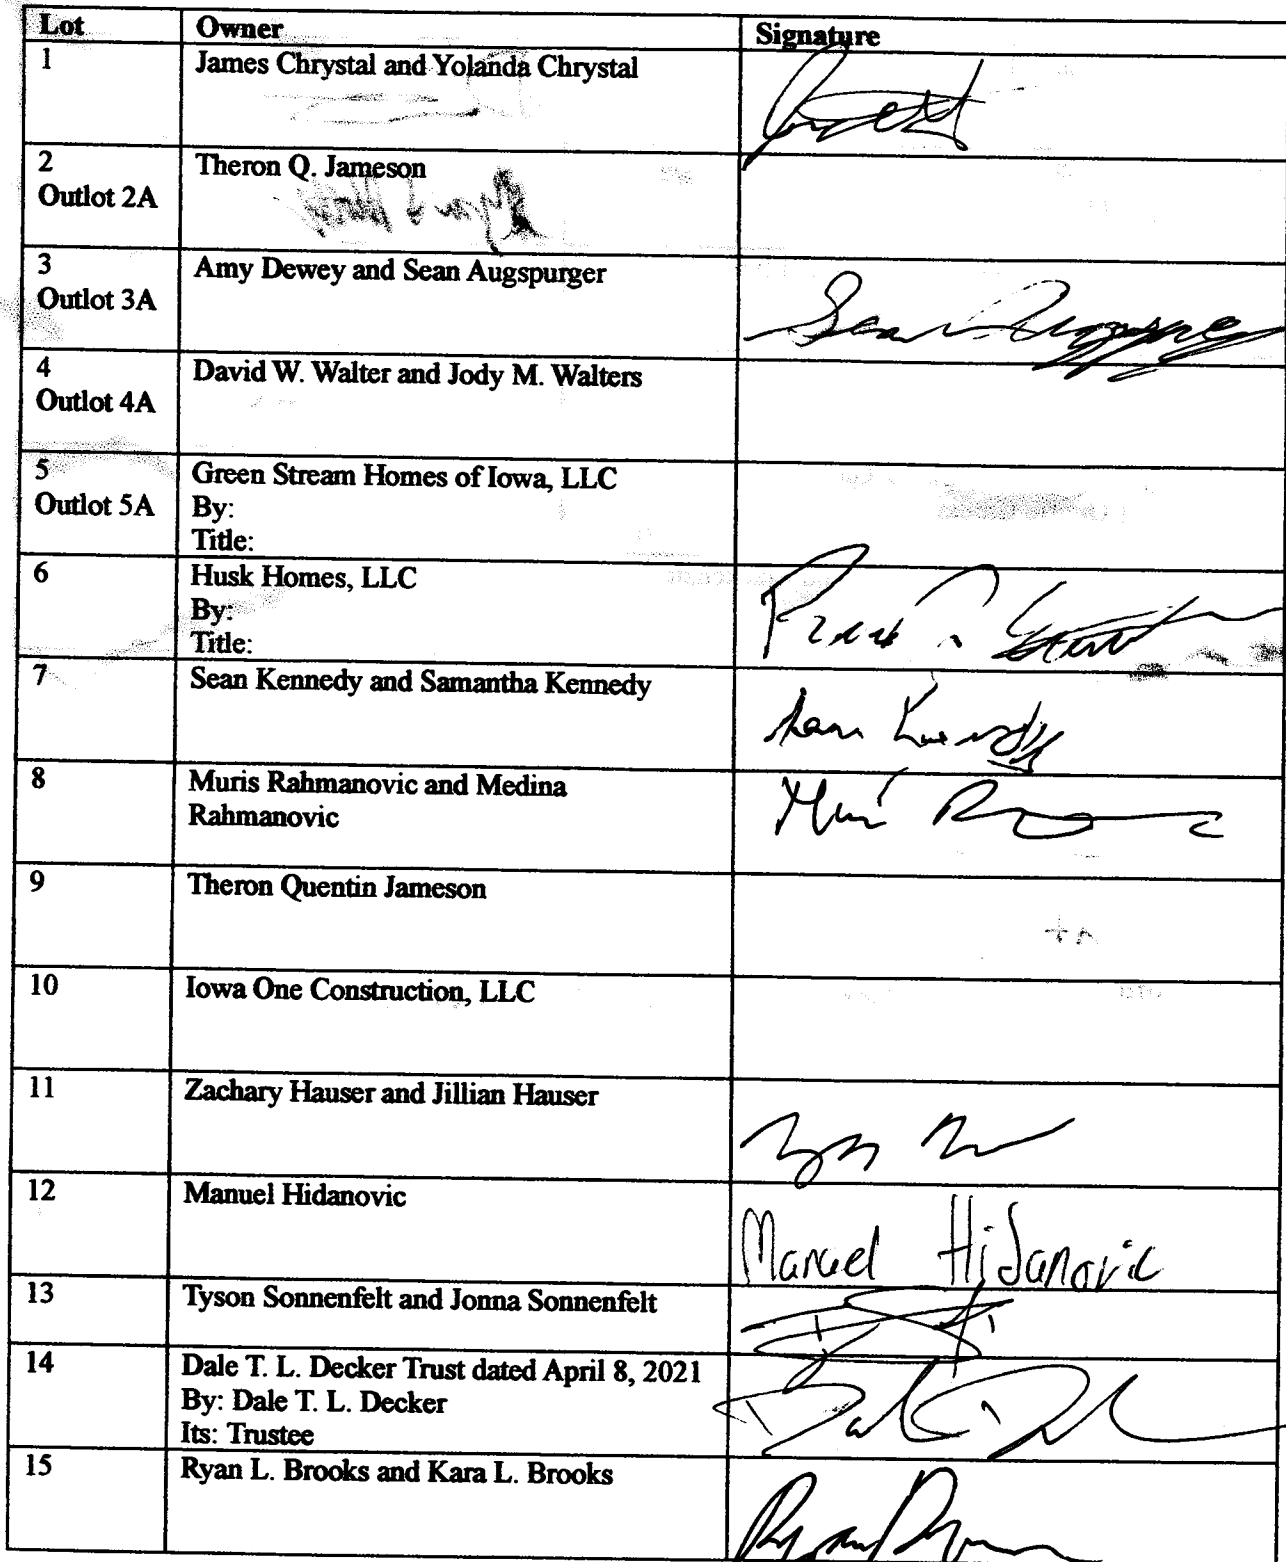 Lot Owner Signature
1 James Chrystal and Yolanda Chrystal
2 Theron Q. Jameson
Outlot 2A
3 Amy Dewey and Sean Augspurger
Outlot 3A
Sean Augspurger
4 David W. Walter and Jody M. Walters
Outlot 4A
5 Green Stream Homes of Iowa, LLC
Outlot 5A By:
Title:
6 Husk Homes, LLC
By:
Title:
7 Sean Kennedy and Samantha Kennedy
Sean Kennedy
8 Muris Rahmanovic and Medina
Rahmanovic
9 Theron Quentin Jameson
10 Iowa One Construction, LLC
11 Zachary Hauser and Jillian Hauser
12 Manuel Hidanovic
Manuel Hidanovic
13 Tyson Sonnenfelt and Jonna Sonnenfelt
14 Dale T. L. Decker Trust dated April 8, 2021
By: Dale T. L. Decker
Its: Trustee
15 Ryan L. Brooks and Kara L. Brooks